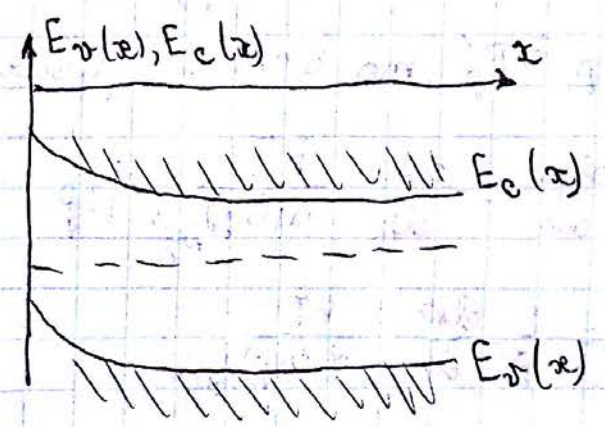 E_v(x), E_c(x)
x
E_c(x)
E_v(x)